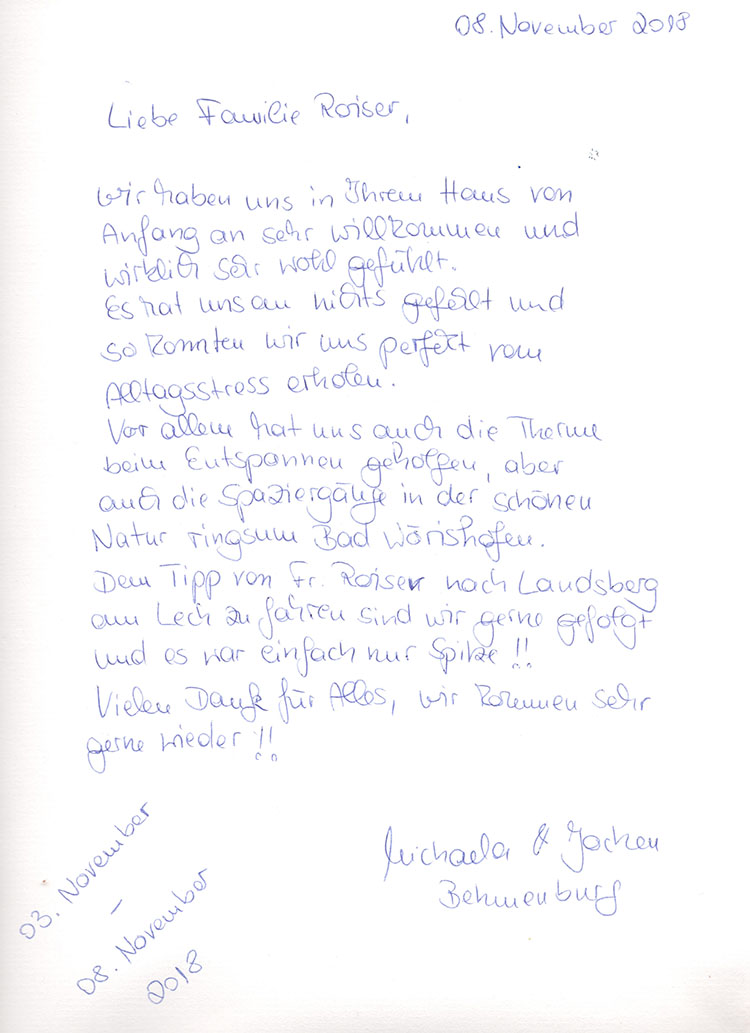 08. November 2018
Liebe Familie Roiser,
wir haben uns in Ihrem Haus von
Anfang an sehr willkommen und
wirklich sehr wohl gefühlt.
Es hat uns an nichts gefehlt und
so konnten wir uns perfekt vom
Alltagsstress erholen.
Vor allem hat uns auch die Therme
beim Entspannen geholfen, aber
auch die Spaziergänge in der schönen
Natur ringsum Bad Wörishofen.
Dem Tipp von Fr. Roiser nach Landsberg
am Lech zu fahren sind wir gerne gefolgt
und es war einfach nur Spitze!!
Vielen Dank für Alles, wir kommen sehr
gerne wieder!!
Michaela & Jochen
Behmenburg
03. November
–
08. November
2018